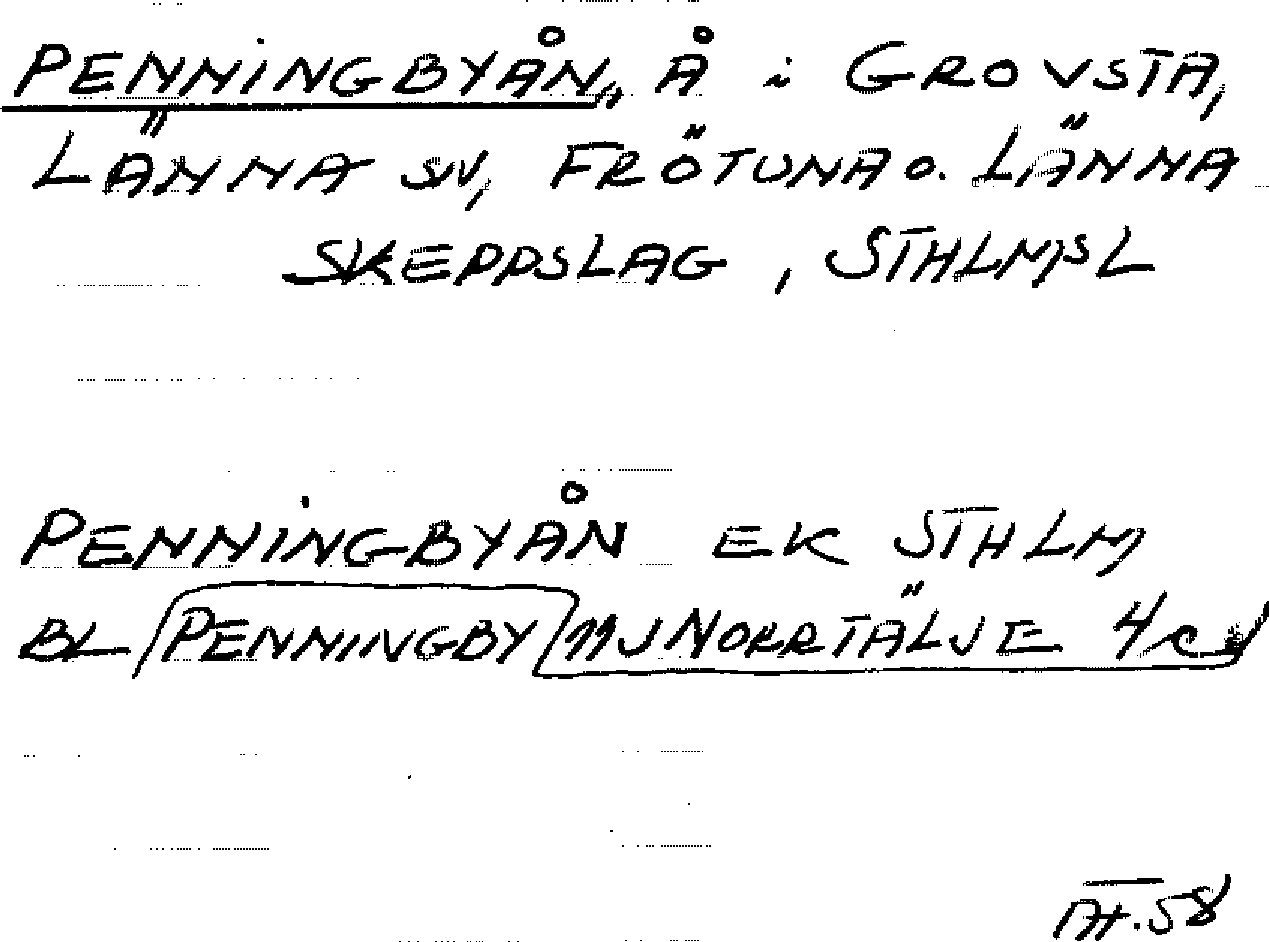 PENNINGBYÅN,, Å i GROVSTA,
LÄNNA sv, FRÖTUNA o. LÄNNA
SKEPPSLAG, STHLMSL
PENNINGBYÅN EK STHLM
BL PENNINGBY 11J NORRTÄLJE
58